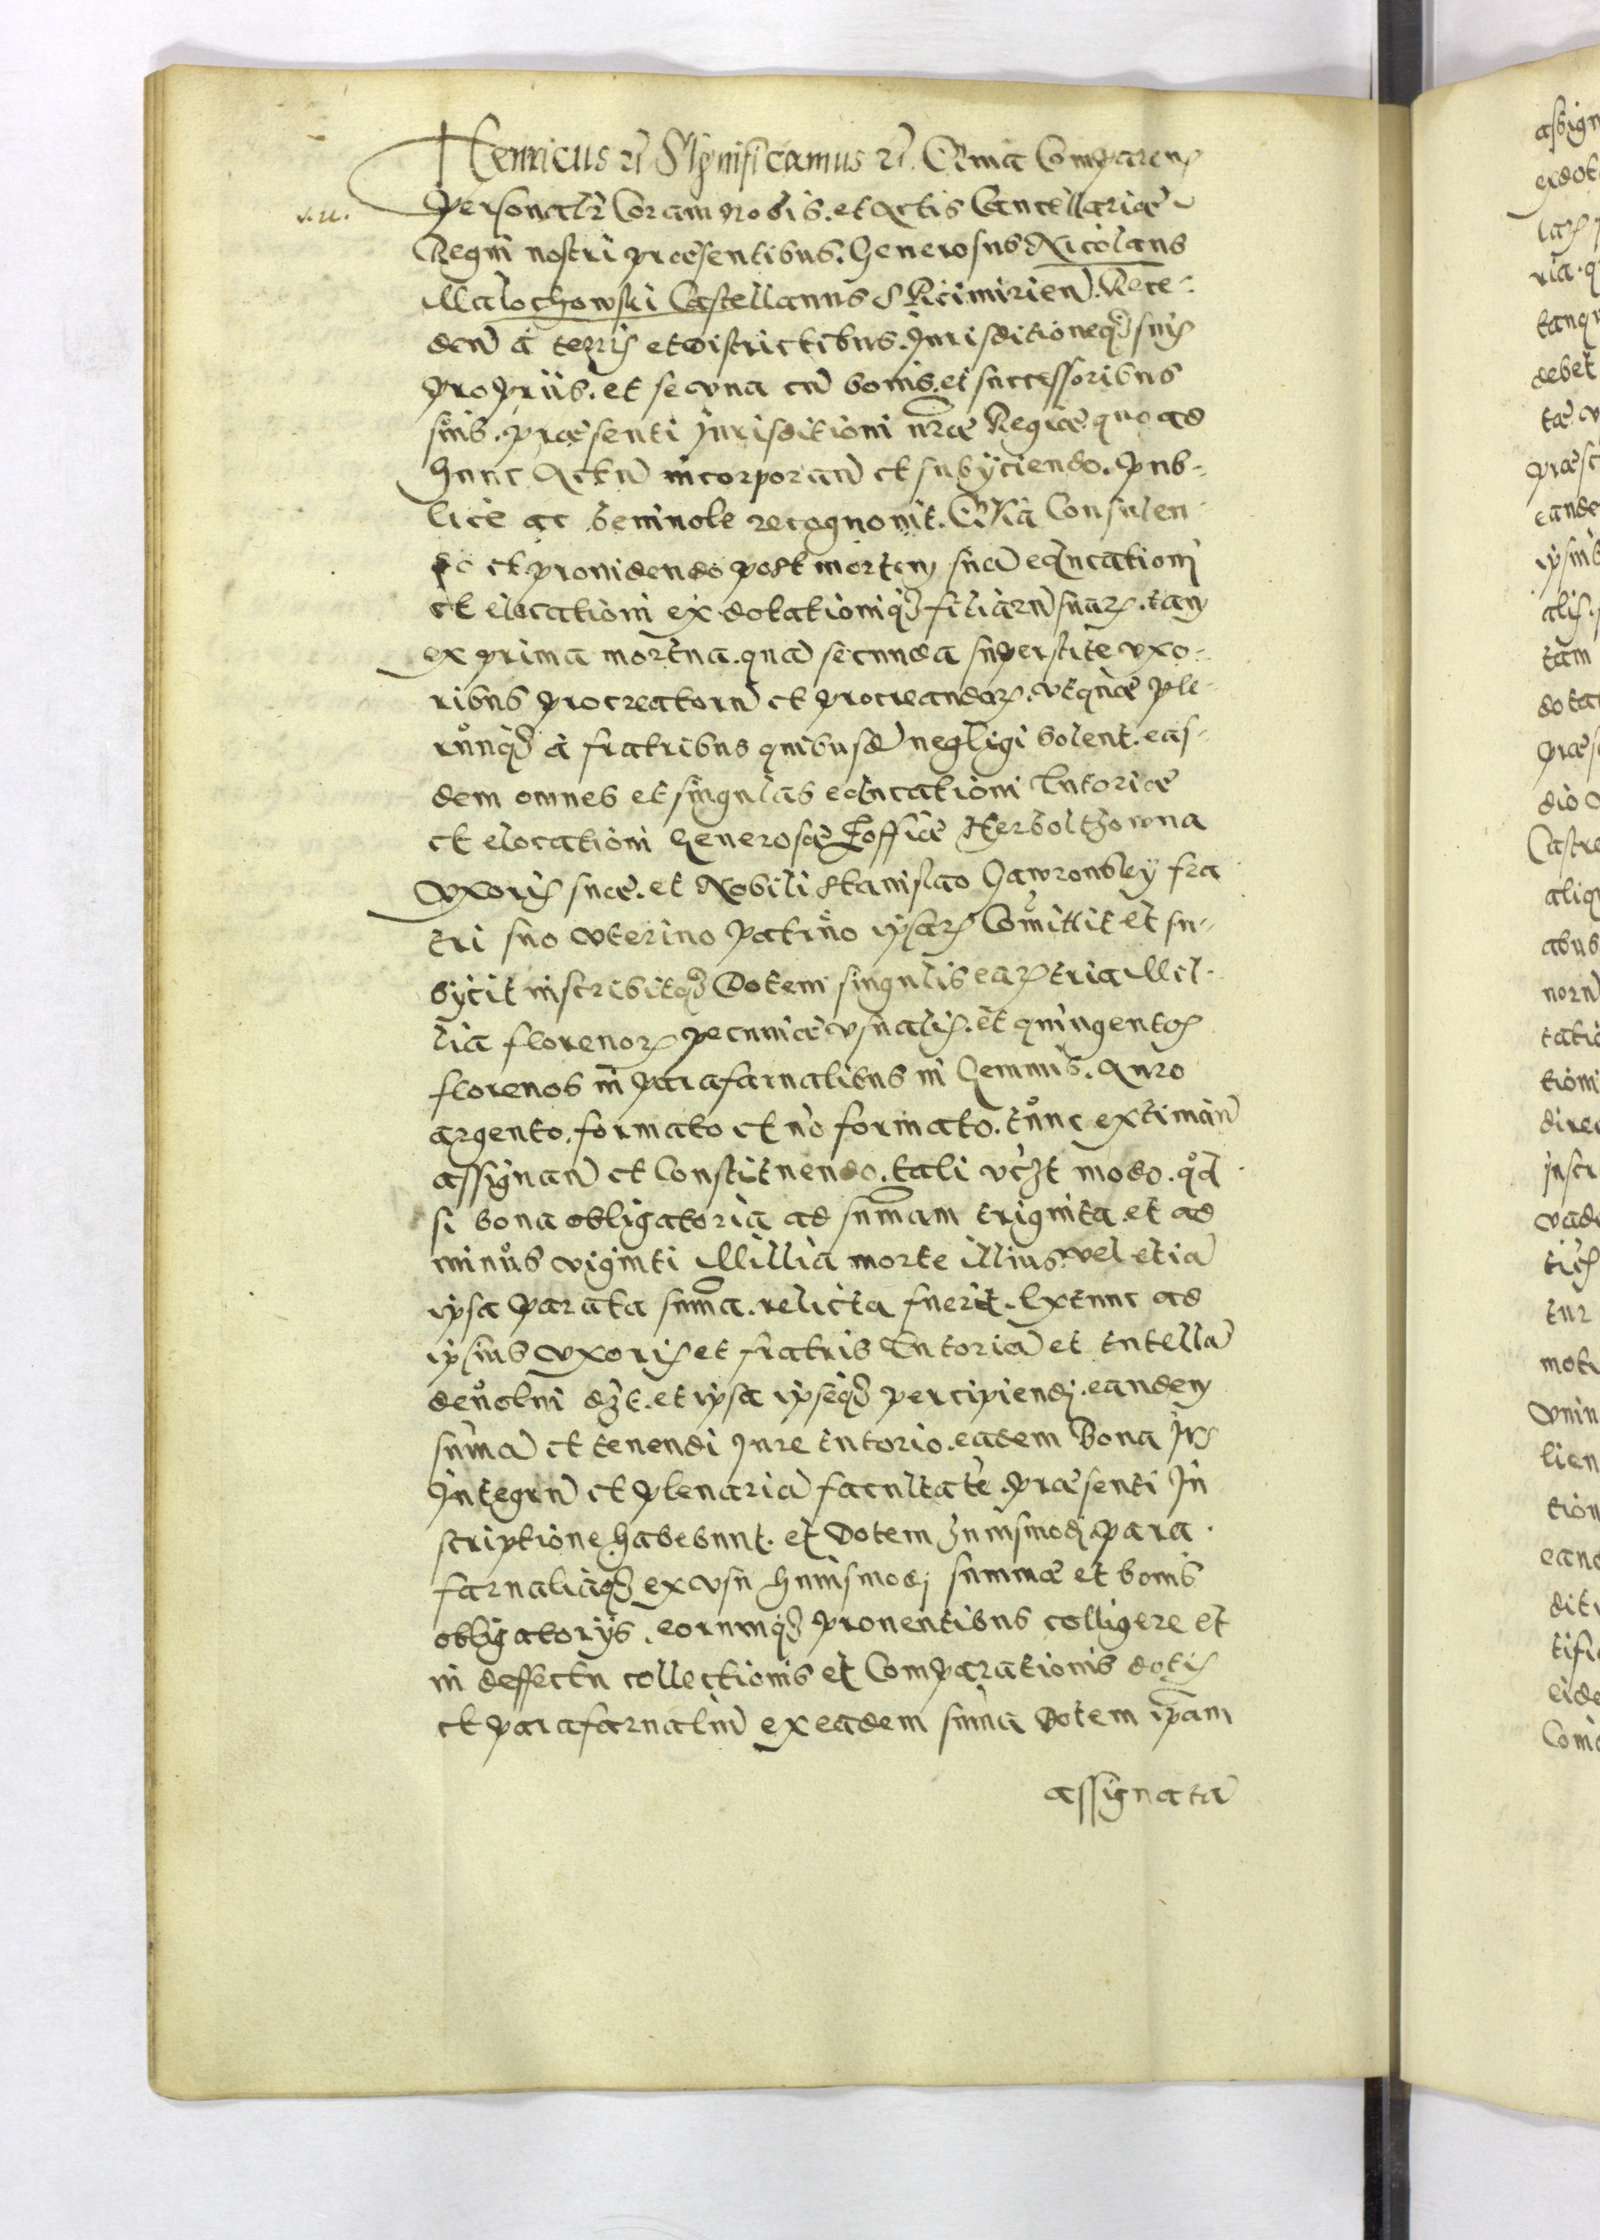 Henricus etc. Significamus etc. Quia Comparens
v. u.
personalr coram nobis. et Actis Cancellariæ
Regni nostri præsentibus. Generosus Nicolaus
Malochowski Castellanus
den a terris et districtibus. Jurisditioneq suis
proprijs. et se una cu bonis. et successoribus
suis. præsenti Jurisditioni nræ Regiæ quoad
hunc Actu incorporan et subijciendo. Pub-
lice ac benivole recognovit. Quia Consulen
do et providendo post mortem sua educationi
et elocationi exdotationiq filiaru suar. tam
ex prima mortua. qua secunda superstite uxo-
ribus procreatoru et procreandar. utquæ ple-
runq a fratribus quibusda negligi solent. eas-
dem omnes et singulas educationi Tutoriæ
et elocationi Generosæ Zoffiæ Herboltowna
Uxoris suæ. et Nobili Stanislao Gawronsky fra
tri suo uterino patruo ipsar Comittit et su-
bijcit inscribitq Dotem singulis ear tria Mil-
lia florenor pecuniæ usualis. et quingentos
florenos in parafarnalibus in Gemmis. Auro
argento. formato et no formato. tunc extiman
assignan et Constituendo. tali uczt modo. qd
si bona obligatoria ad sumam triginta et ad
minus viginti Millia morte illius. vel etia
ipsa parata suma. relicta fuerit. Extunc ad
ipsius Uxoris et fratris Tutoria et tutella
devolui dzt. et ipsa ipseq percipiendi. eandem
suma et tenendi Jure tutorio. eadem Bona Jus
Integru et plenaria facultate. præsenti In
scriptione habebunt. et Dotem huiusmodi para
farnaliaq ex usu huiusmodi summæ et bonis
obligatorijs. eorumq proventibus colligere et
in deffectu collectionis et Comparationis dotis
et parafarnaliu ex eadem suma Dotem ipam
assignata